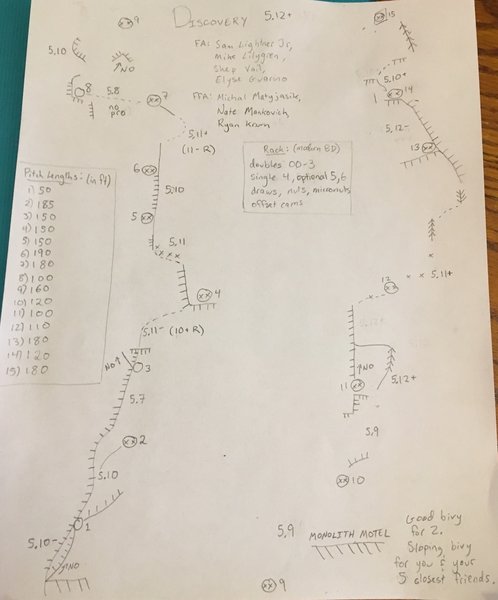 DISCOVERY 5.12+
FA: Sam Lightner Jr,
Mike Lilygren,
Shep Vail,
Elyse Guarino
FFA: Michal Matyjasik,
Nate Mankovich,
Ryan
Rack: (modern BD)
doubles 00-3
single 4, optional 5,6
draws, nuts, micronuts
offset cams
Pitch Lengths: (in ft)
1) 50
2) 185
3) 150
4) 150
5) 150
6) 190
7) 180
8) 100
9) 160
10) 120
11) 100
12) 110
13) 180
14) 120
15) 180
xx 9
5.10
NO
8
5.8
no
pro
xx 7
5.11+
(11-R)
6 xx
5.10
5 xx
5.11
x x x
xx 4
5.11- (10+R)
NO
3
5.7
xx 2
5.10
1
5.10-
NO
xx 15
5.10+
xx 14
5.12-
13 xx
x
x x 5.11+
12
xx
x x
NO
11 xx
5.12+
5.9
xx 10
5.9
MONOLITH MOTEL
Good bivy
for 2.
Sloping bivy
for you & your
5 closest friends.
xx 9